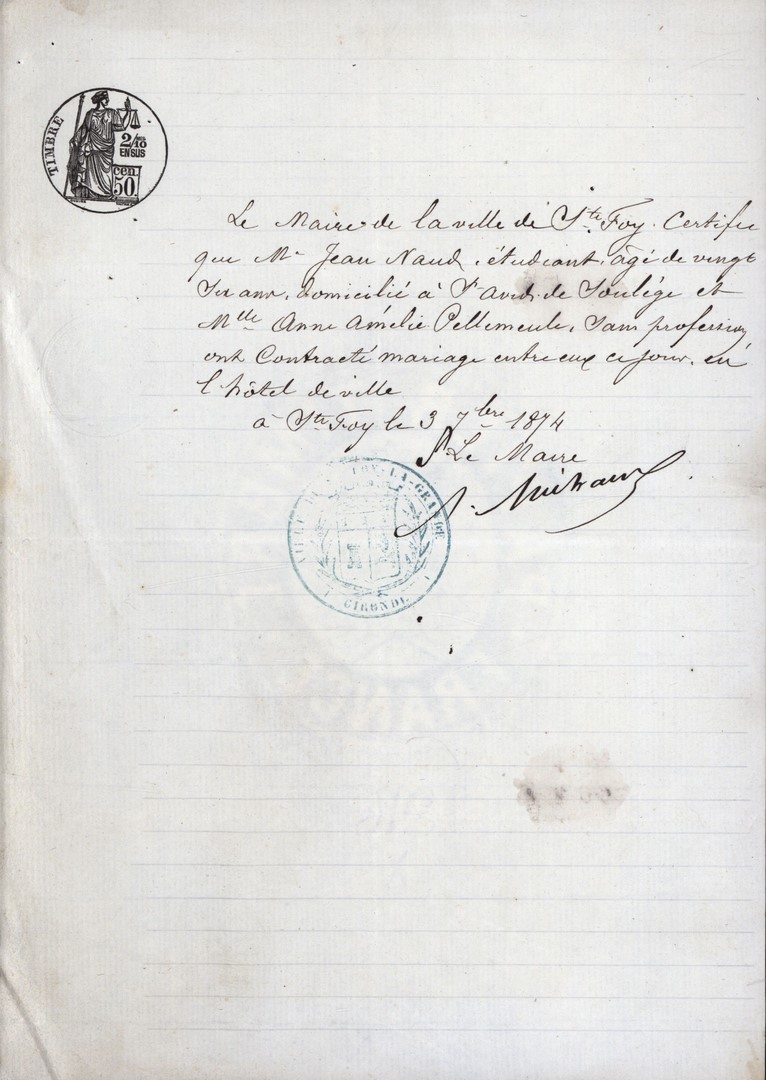 TIMBRE
2/10
EN SUS
CEN.
50.
Le Maire de la ville de Ste Foy. Certifie
que Mr Jean Naud, étudiant, âgé de vingt
six ans, domicilié à St avit de Soulège et
Mlle Anne Amélie Pellemeule, sans profession,
ont Contracté mariage entre eux ce jour, en
l'hôtel de ville
à Ste Foy le 3 7bre 1874
Le Maire
LA-GRANDE
GIRONDE
FRANCE